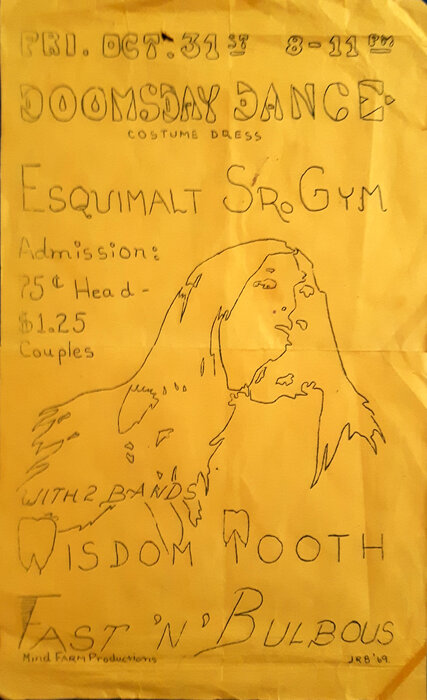 FRI. OCT. 31ST 8-11PM
DOOMSDAY DANCE
COSTUME DRESS
ESQUIMALT SR. GYM
Admission:
75¢ Head -
$1.25
Couples
WITH 2 BANDS
WISDOM TOOTH
FAST 'N' BULBOUS
Mind FARM Productions
JRB '69